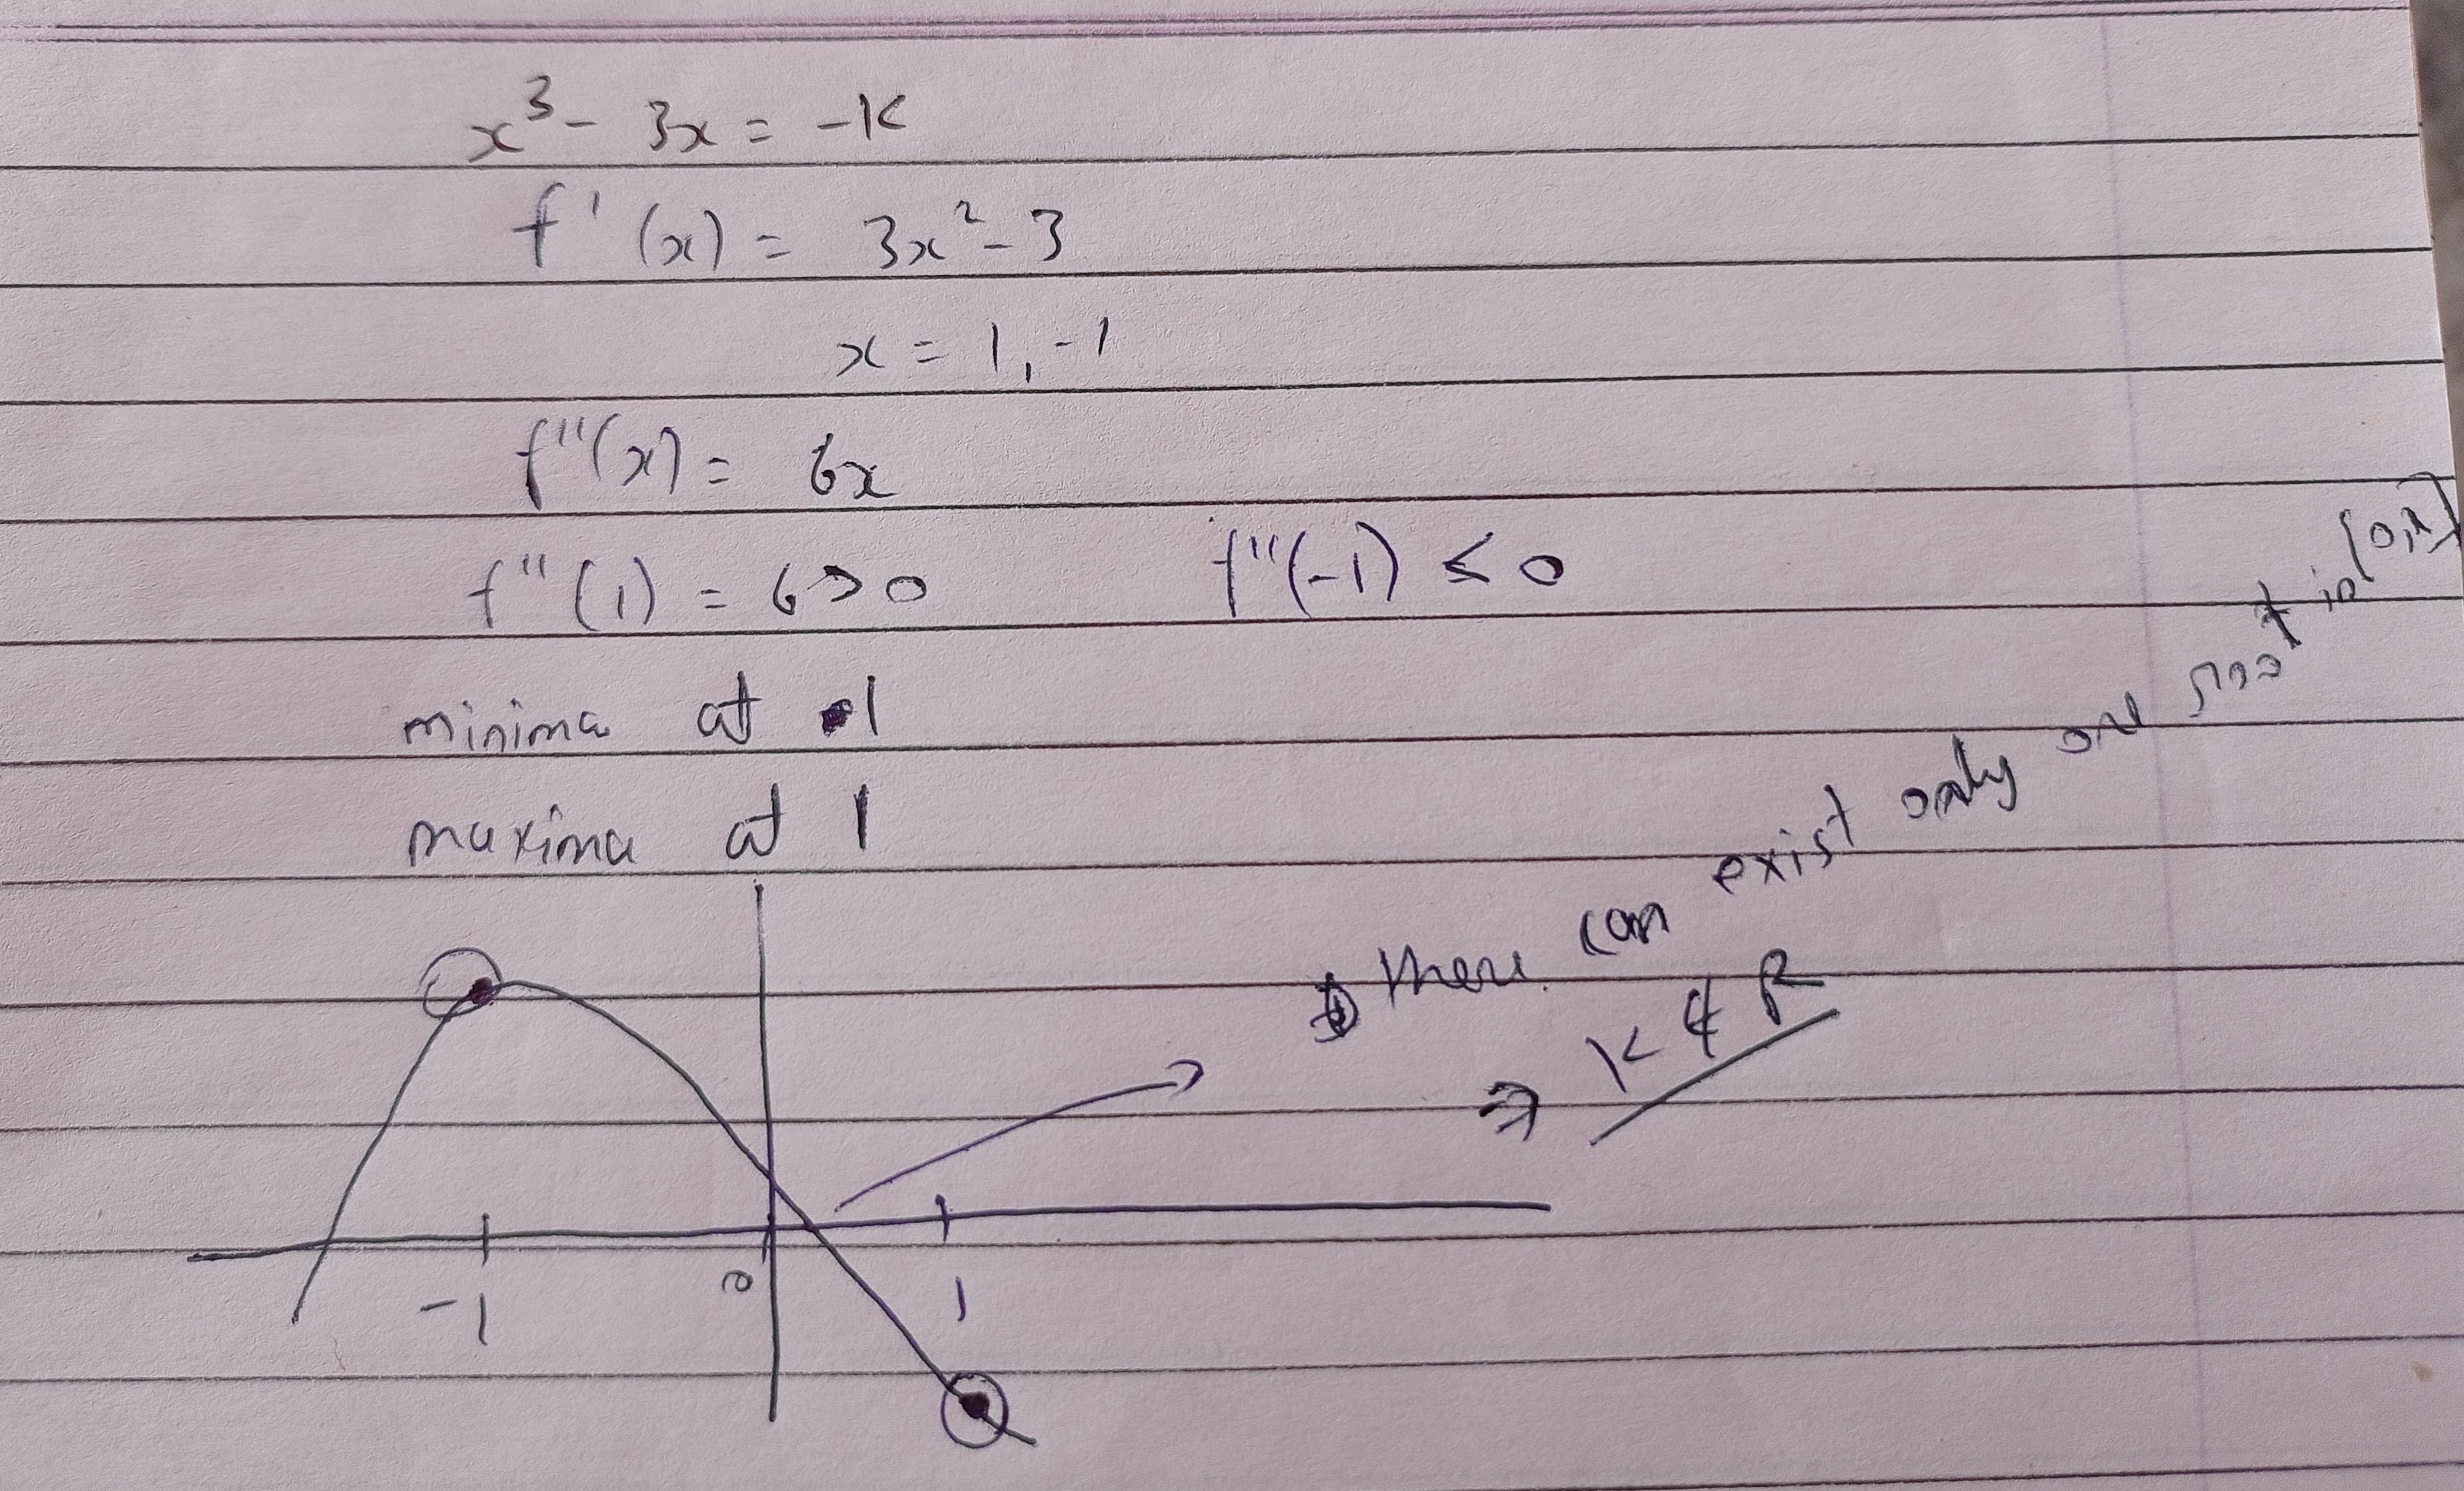 x³ - 3x = -K
f'(x) = 3x² - 3
x = 1, -1
f''(x) = 6x
f''(1) = 6 > 0 f''(-1) < 0
minima at 1
maxima at 1
there can exist only one root in [0,1]
⇒ K ∉ R
-1 0 1